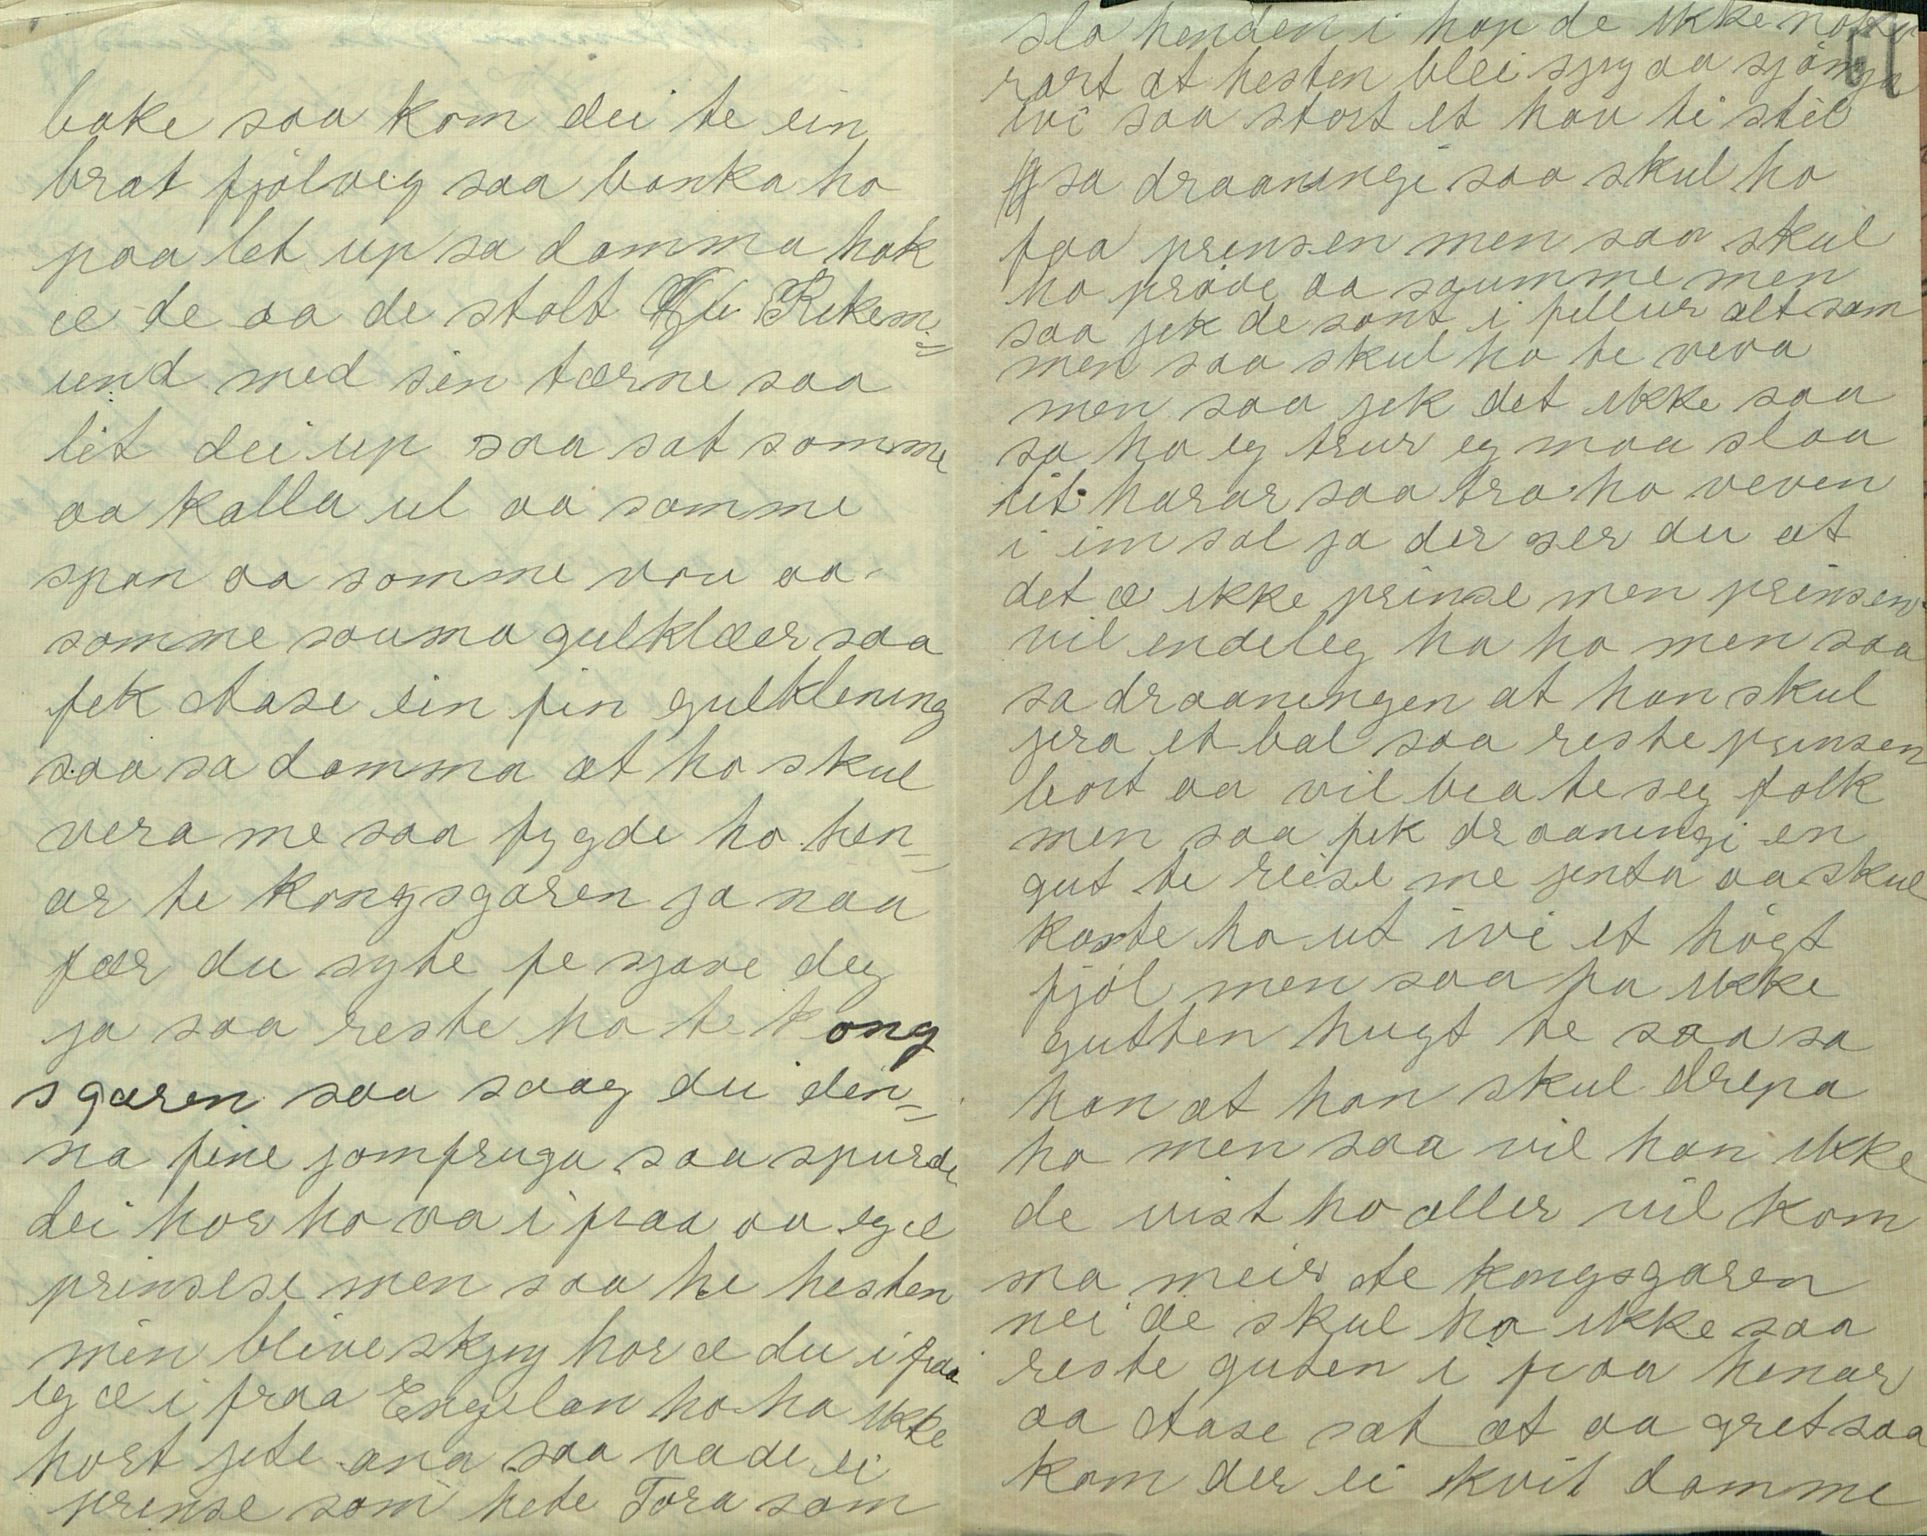 bake saa kom dei te ein
brat fjölveg saa banka ho
paa let up sa damma hak
æ de aa de stolt Rikem=
und med sin tærne saa
lit dei up saa sat somme
aa kalla ul aa somme
span aa somme vou aa
somme souma gulklæer saa
fek Aase ein fin gulklening
saa sa damma at ho skul
vera me saa fygde ho hen=
ar te kongsgaren ja naa
fær du syte fe sjøve deg
ja saa reste ho te kong
sgaren saa saag du den=
na fine jomfruga saa spurde
dei hor ho va i fraa aa eg æ
prinsese men saa he hesten
min blive skjyg hor æ du i fraa
eg æ i fraa Engelan ho ha ikke
hort jete ana saa va de ei
prinse som hete Tora som
slo henden i hop de ikke noke
rart at hesten blei sjyg aa sjönge
ivi saa stort et hau ti stèl
sa draaningi saa skul ho
faa prinsen men saa skul
ho pröve aa soumme men
saa jek de sont i fillur alt sam
men saa skul ho te veva
men saa jek det ikke saa
sa ho eg trur eg maa slaa
lit harar saa bra ho veven
i im sal ja der ser du at
det æ ikke prinse men prinsen
vil endeleg ha ho men saa
sa draaningen at han skul
jera et bal saa reste prinsen
bort aa vil bea te seg folk
men saa fek draaningi en
gut te reise me jenta aa skul
kaste ho ut ivi et högt
fjöl men saa ha ikke
gutten hugt te saa sa
han at han skul drepa
ho men saa vil han ikke
de vist ho aller vil kom
ma meir te kongsgaren
nei de skul ho ikke saa
reste guten i fraa henar
aa Aase sat at aa gret saa
kom der ei kvit damme